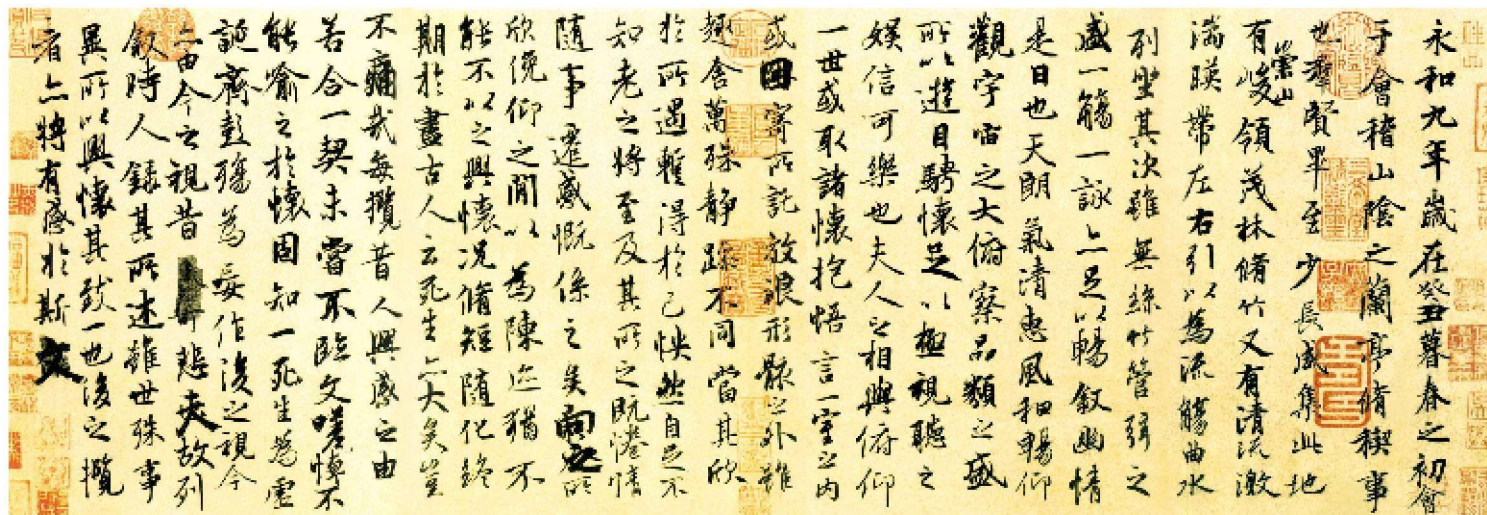 永和九年歲在癸丑暮春之初會
于會稽山陰之蘭亭脩稧事
也羣賢畢至少長咸集此地
有崇山峻領茂林脩竹又有清流激
湍暎帶左右引以為流觴曲水
列坐其次雖無絲竹管弦之
盛一觴一詠亦足以暢叙幽情
是日也天朗氣清惠風和暢仰
觀宇宙之大俯察品類之盛
所以遊目騁懷足以極視聽之
娛信可樂也夫人之相與俯仰
一世或取諸懷抱悟言一室之内
或因寄所託放浪形骸之外雖
趣舍萬殊静躁不同當其欣
於所遇暫得於己怏然自足不
知老之將至及其所之既惓情
隨事遷感慨係之矣向之所
欣俛仰之閒以為陳迹猶不
能不以之興懷況脩短隨化終
期於盡古人云死生亦大矣豈
不痛哉每攬昔人興感之由
若合一契未嘗不臨文嗟悼不
能喻之於懷固知一死生為虛
誕齊彭殤為妄作後之視今
亦由今之視昔悲夫故列
叙時人錄其所述雖世殊事
異所以興懷其致一也後之攬
者亦將有感於斯文